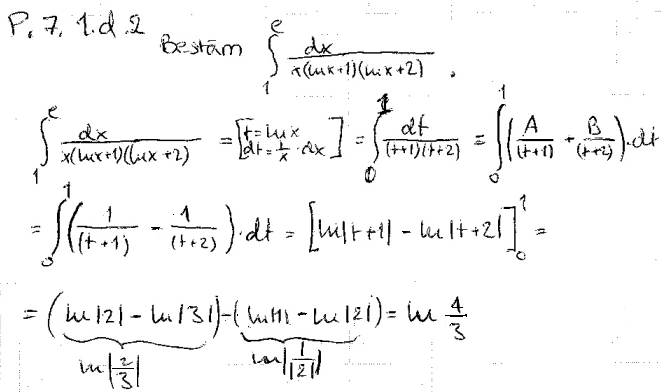 P. 7. 1.d.2 Bestäm ∫₁ᵉ dx / (x(ln x+1)(ln x+2)) .
∫₁ᵉ dx / (x(ln x+1)(ln x+2)) = [t = ln x, dt = 1/x · dx] = ∫₀¹ dt / ((t+1)(t+2)) = ∫₀¹ (A/(t+1) + B/(t+2)) · dt
= ∫₀¹ (1/(t+1) − 1/(t+2)) · dt = [ln|t+1| − ln|t+2|]₀¹ =
= (ln|2| − ln|3|) − (ln|1| − ln|2|) = ln 4/3
ln|2/3| ln|1/|2||